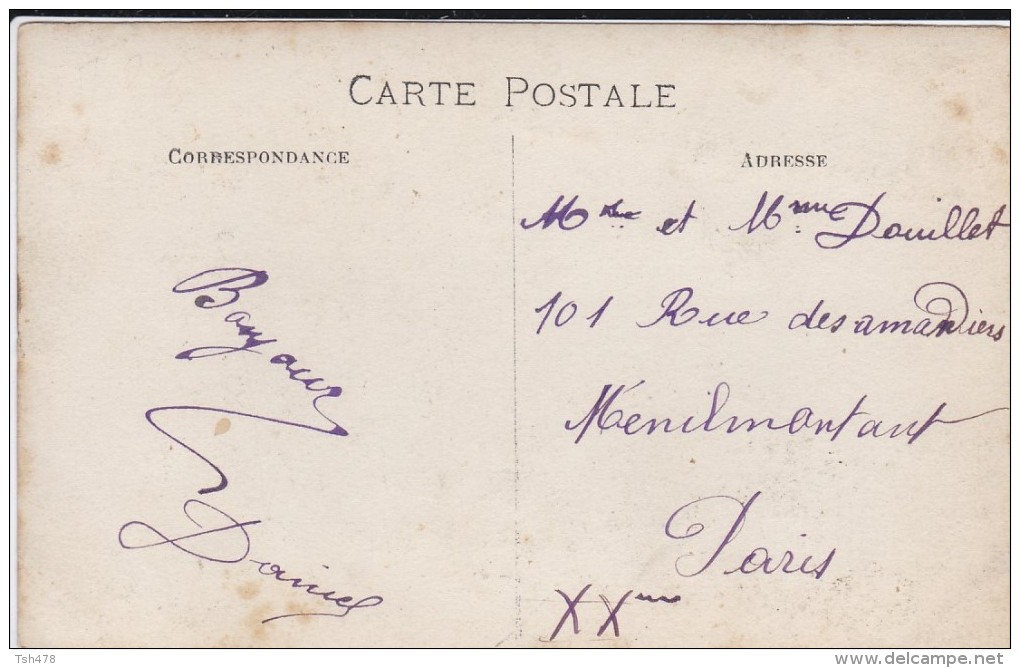 CARTE POSTALE
CORRESPONDANCE
Bonjour
Daniel
ADRESSE
et Mme Douillet
101 Rue des amandiers
Menilmontant
Paris
XXme
Tsh478
www.delcampe.net